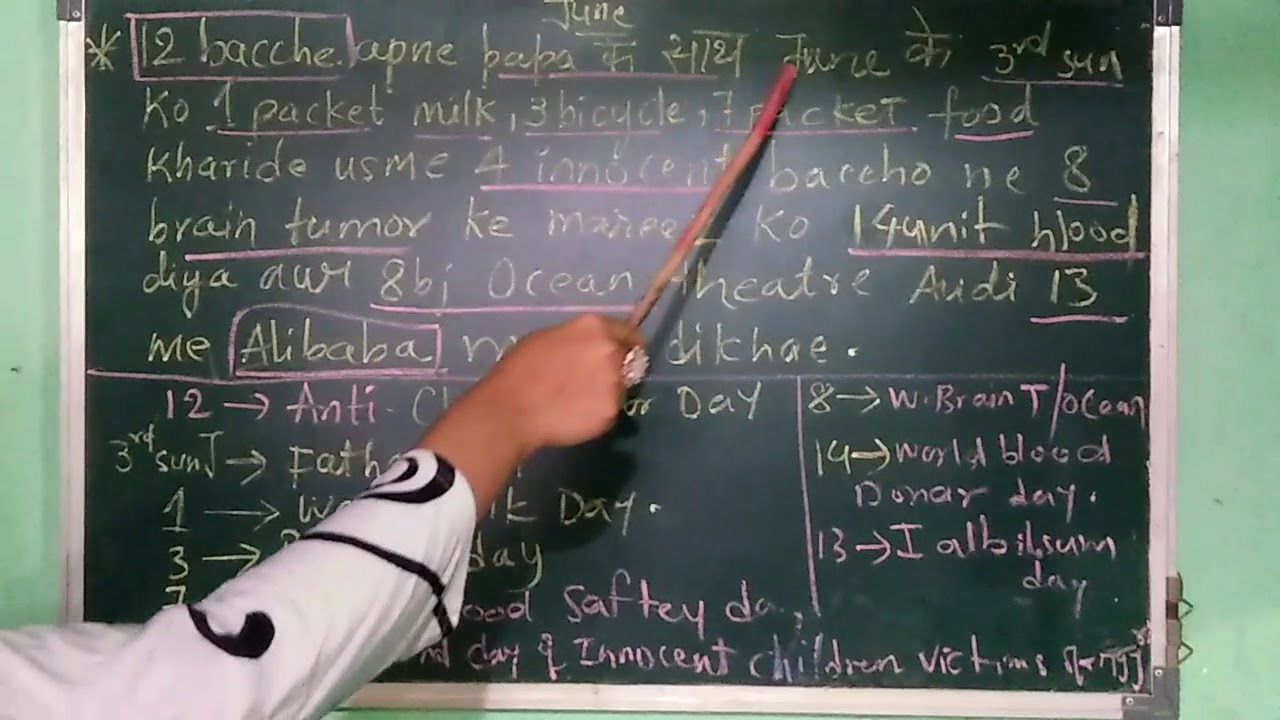 June
* 12 bacche apne papa के साथ June के 3rd sun
ko 1 packet milk, 3 bicycle, 7 packet food
kharide usme 4 innocent baccho ne 8
brain tumor ke mareez ko 14 unit blood
diya aur 8 bj Ocean theatre Audi 13
me Alibaba dikhae.
12 → Anti Day
3rd sun] → Fath
1 → Day.
3 → day
7 ood Saftey da
day of Innocent children victims of
8 → W. Brain T/Ocean
14 → World blood
Donar day.
13 → I albilsum
day